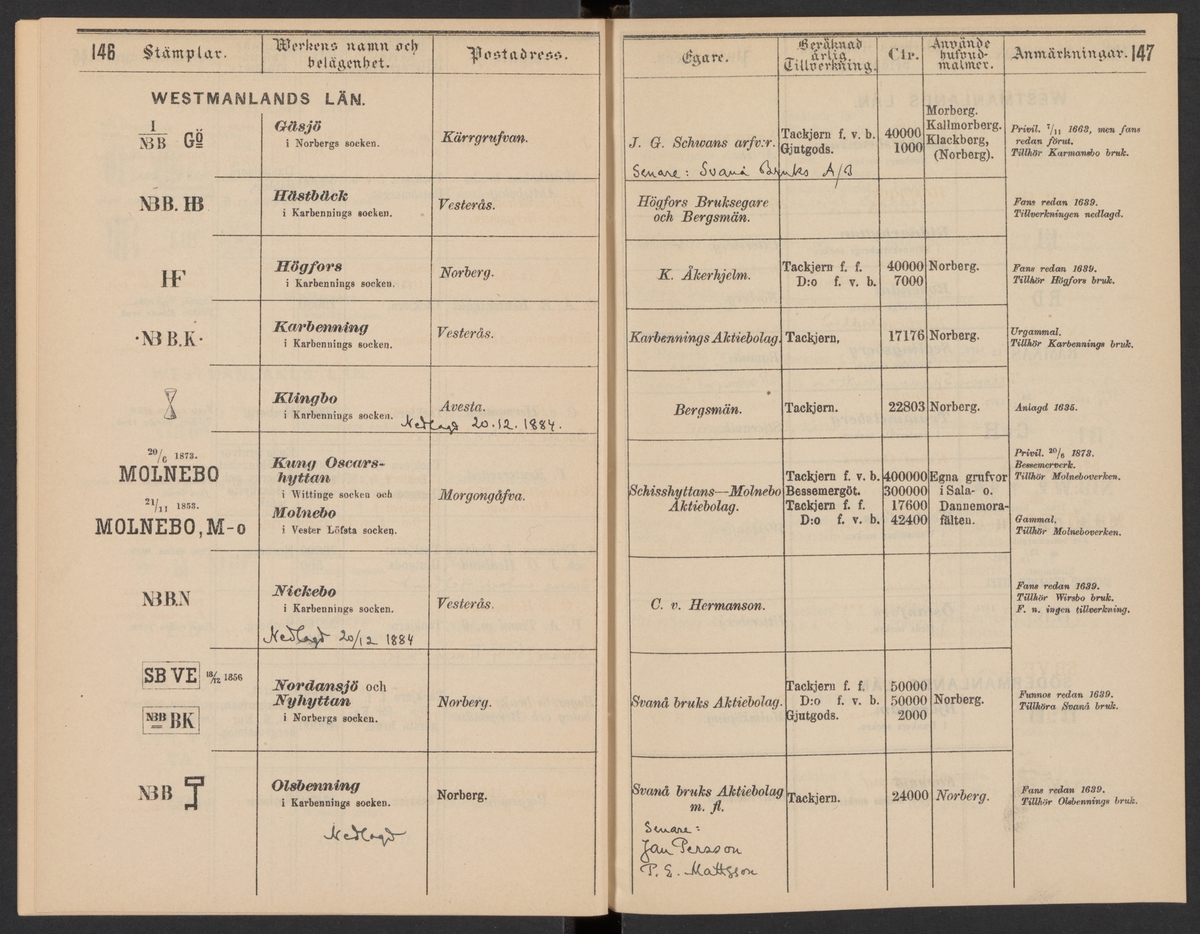 146 Stämplar. Werkens namn och belägenhet. Postadress.
WESTMANLANDS LÄN.
I
NBB GÖ
Gäsjö
i Norbergs socken.
Kärrgrufvan.
NBB. HB
Hästbäck
i Karbennings socken.
Vesterås.
HF
Högfors
i Karbennings socken.
Norberg.
·NBB.K·
Karbenning
i Karbennings socken.
Vesterås.
Klingbo
i Karbennings socken.
Avesta.
Nedlagd 20.12.1884.
20/6 1873.
MOLNEBO
21/11 1853.
MOLNEBO, M-o
Kung Oscars-
hyttan
i Wittinge socken och
Molnebo
i Vester Löfsta socken.
Morgongåfva.
NBB.N
Nickebo
i Karbennings socken.
Vesterås.
Nedlagd 20/12 1884
SB VE 18/12 1856
NBB BK
Nordansjö och
Nyhyttan
i Norbergs socken.
Norberg.
NBB
Olsbenning
i Karbennings socken.
Norberg.
Nedlagd
Egare. Beräknad årlig Tillverkning. Ctr. Använde hufvud-malmer. Anmärkningar. 147
J. G. Schwans arfv:r.
Tackjern f. v. b. 40000
Gjutgods. 1000
Morberg.
Kallmorberg.
Klackberg,
(Norberg).
Privil. 7/11 1663, men fans
redan förut.
Tillhör Karmansbo bruk.
Senare: Svanå Bruks A/B
Högfors Bruksegare
och Bergsmän.
Fans redan 1639.
Tillverkningen nedlagd.
K. Åkerhjelm.
Tackjern f. f. 40000 Norberg.
D:o f. v. b. 7000
Fans redan 1639.
Tillhör Högfors bruk.
Karbennings Aktiebolag. Tackjern, 17176 Norberg.
Urgammal.
Tillhör Karbennings bruk.
Bergsmän. Tackjern. 22803 Norberg. Anlagd 1635.
Schisshyttans—Molnebo
Aktiebolag.
Tackjern f. v. b. 400000
Bessemergöt. 300000
Tackjern f. f. 17600
D:o f. v. b. 42400
Egna grufvor
i Sala- o.
Dannemora-
fälten.
Privil. 20/6 1873.
Bessemerverk.
Tillhör Molneboverken.
Gammal.
Tillhör Molneboverken.
C. v. Hermanson.
Fans redan 1639.
Tillhör Wirsbo bruk.
F. n. ingen tillverkning.
Svanå bruks Aktiebolag.
Tackjern f. f. 50000
D:o f. v. b. 50000 Norberg.
Gjutgods. 2000
Funnos redan 1639.
Tillhöra Svanå bruk.
Svanå bruks Aktiebolag
m. fl.
Tackjern. 24000 Norberg.
Fans redan 1639.
Tillhör Olsbennings bruk.
Senare:
Jan Persson
P. E. Mattsson